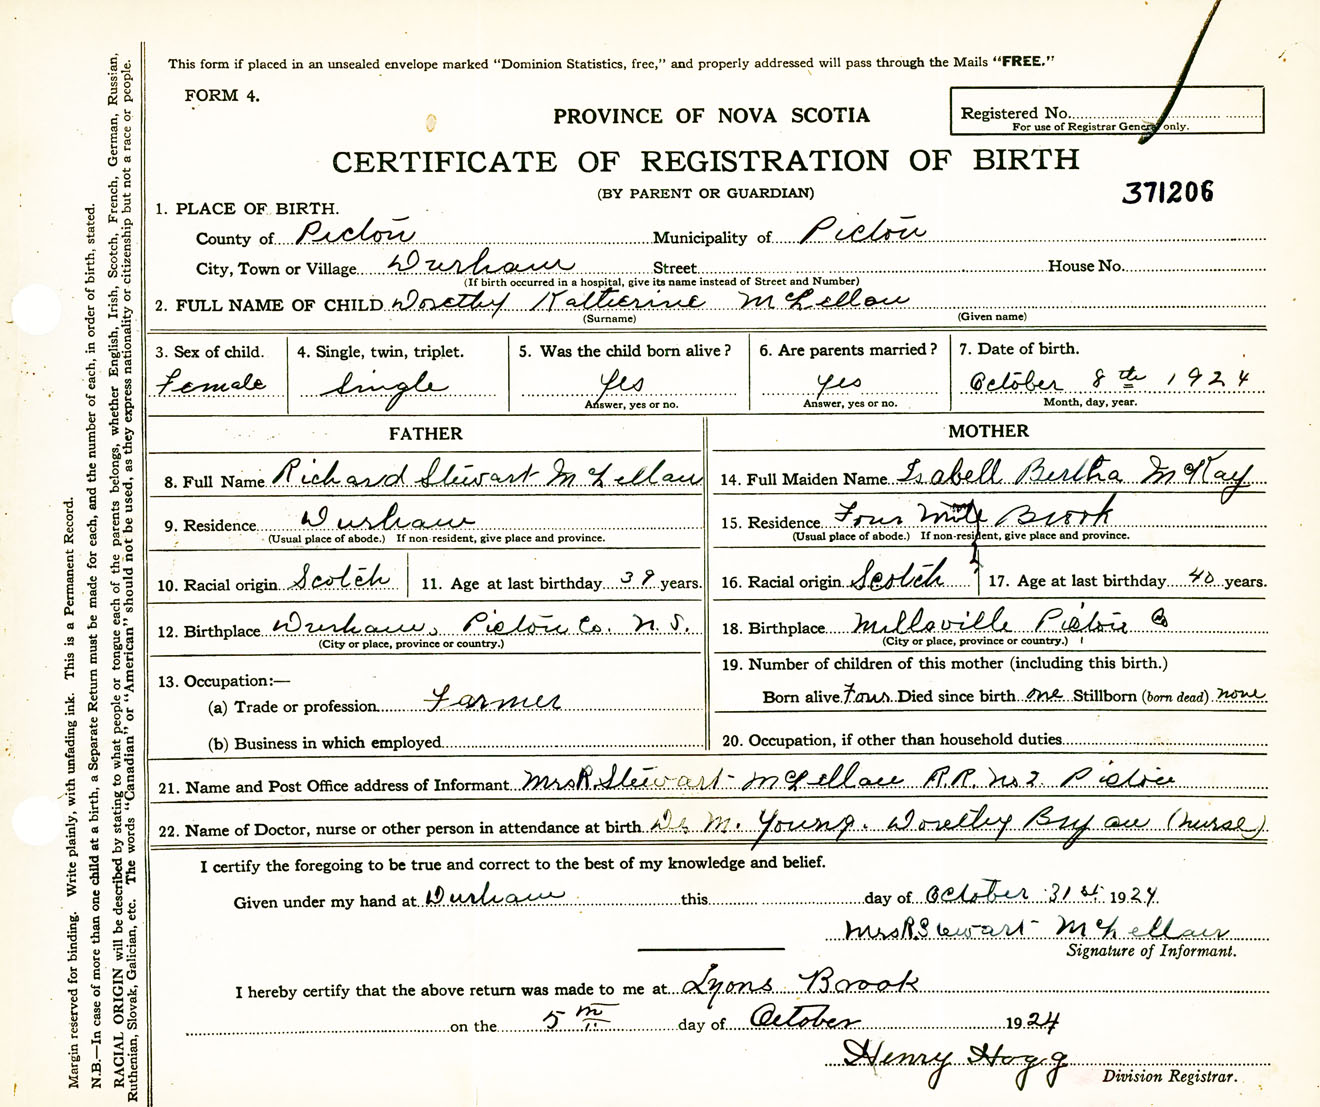 This form if placed in an unsealed envelope marked "Dominion Statistics, free," and properly addressed will pass through the Mails "FREE."
FORM 4.
PROVINCE OF NOVA SCOTIA
Registered No.
For use of Registrar General only.
CERTIFICATE OF REGISTRATION OF BIRTH
(BY PARENT OR GUARDIAN)
371206
1. PLACE OF BIRTH.
County of Pictou Municipality of Pictou
City, Town or Village Durham Street House No.
(If birth occurred in a hospital, give its name instead of Street and Number)
2. FULL NAME OF CHILD Dorethy Katherine McLellan
(Surname) (Given name)
3. Sex of child. 4. Single, twin, triplet. 5. Was the child born alive? 6. Are parents married? 7. Date of birth.
Female Single Yes Yes October 8th 1924
Answer, yes or no. Answer, yes or no. Month, day, year.
FATHER MOTHER
8. Full Name Richard Stewart McLellan 14. Full Maiden Name Isabell Bertha McKay
9. Residence Durham 15. Residence Four Mile Brook
(Usual place of abode.) If non-resident, give place and province. (Usual place of abode.) If non-resident, give place and province.
10. Racial origin Scotch 11. Age at last birthday 39 years. 16. Racial origin Scotch 17. Age at last birthday 40 years.
12. Birthplace Durham, Pictou Co. N.S. 18. Birthplace Millsville Pictou Co
(City or place, province or country.) (City or place, province or country.)
13. Occupation:— 19. Number of children of this mother (including this birth.)
(a) Trade or profession Farmer Born alive Four Died since birth one Stillborn (born dead) none
(b) Business in which employed 20. Occupation, if other than household duties
21. Name and Post Office address of Informant Mrs R. Stewart McLellan R.R. No 2 Pictou
22. Name of Doctor, nurse or other person in attendance at birth Dr M. Young. Dorethy Bryan (nurse)
I certify the foregoing to be true and correct to the best of my knowledge and belief.
Given under my hand at Durham this day of October 31st 1924.
Mrs R. Stewart McLellan
Signature of Informant.
I hereby certify that the above return was made to me at Lyons Brook
on the 5 day of October 1924
Henry Hogg
Division Registrar.
Margin reserved for binding. Write plainly, with unfading ink. This is a Permanent Record.
N.B.—In case of more than one child at a birth, a Separate Return must be made for each, and the number of each, in order of birth, stated.
RACIAL ORIGIN will be described by stating to what people or tongue each of the parents belongs, whether English, Irish, Scotch, French, German, Russian,
Ruthenian, Slovak, Galician, etc. The words "Canadian" or "American" should not be used, as they express nationality or citizenship but not a race or people.